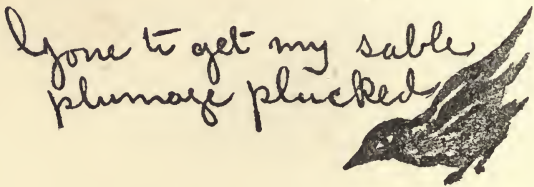 Gone to get my sable
plumage plucked